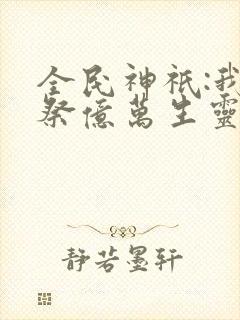 全民神祇:我
祭億萬生靈
靜若墨軒